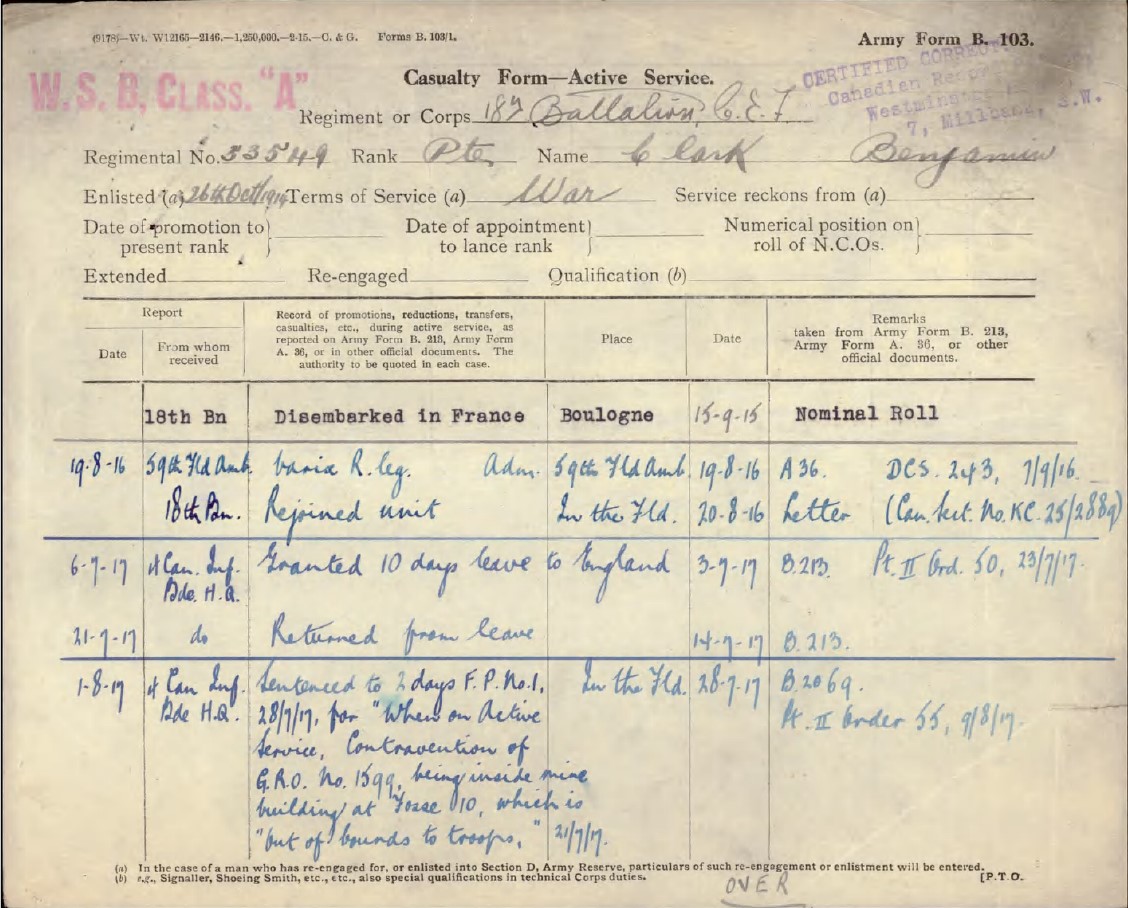 (9178)—Wt. W12165—2146.—1,250,000.—2-15.—C. & G. Forms B. 103/1.
Army Form B. 103.
W.S.B. CLASS. "A"
CERTIFIED CORRECT.
Canadian
Westminster
7, Millbank, S.W.
Casualty Form—Active Service.
Regiment or Corps 18th Battalion, C.E.F.
Regimental No. 53549 Rank Pte Name Clark Benjamin
Enlisted (a) 26th Oct/1914 Terms of Service (a) War Service reckons from (a)
Date of promotion to present rank } Date of appointment to lance rank } Numerical position on roll of N.C.Os. }
Extended Re-engaged Qualification (b)
Report
Date
From whom received
Record of promotions, reductions, transfers,
casualties, etc., during active service, as
reported on Army Form B. 213, Army Form
A. 36, or in other official documents. The
authority to be quoted in each case.
Place
Date
Remarks
taken from Army Form B. 213,
Army Form A. 36, or other
official documents.
18th Bn Disembarked in France Boulogne 15-9-15 Nominal Roll
19-8-16 59th Fld Amb. Varix R. leg. Adm. 59th Fld Amb. 19-8-16 A36. DCS. 243, 7/9/16.
18th Bn. Rejoined unit In the Fld. 20-8-16 Letter (Can. Sect. No. KC. 25/2889)
6-7-17 4 Can. Inf. Granted 10 days leave to England 3-7-17 B.213. Pt. II Ord. 50, 23/7/17.
Bde. H.Q.
21-7-17 do Returned from leave 14-7-17 B.213.
1-8-17 4 Can Inf. Sentenced to 2 days F.P. No.1, In the Fld. 28-7-17 B.2069.
Bde H.Q. 28/7/17, for "When on Active Pt. II Order 55, 9/8/17.
Service, Contravention of
G.R.O. No. 1599, being inside mine
building at Fosse 10, which is
"out of bounds to troops," 21/7/17.
(a) In the case of a man who has re-engaged for, or enlisted into Section D, Army Reserve, particulars of such re-engagement or enlistment will be entered.
(b) e.g., Signaller, Shoeing Smith, etc., etc., also special qualifications in technical Corps duties.
[P.T.O.
OVER